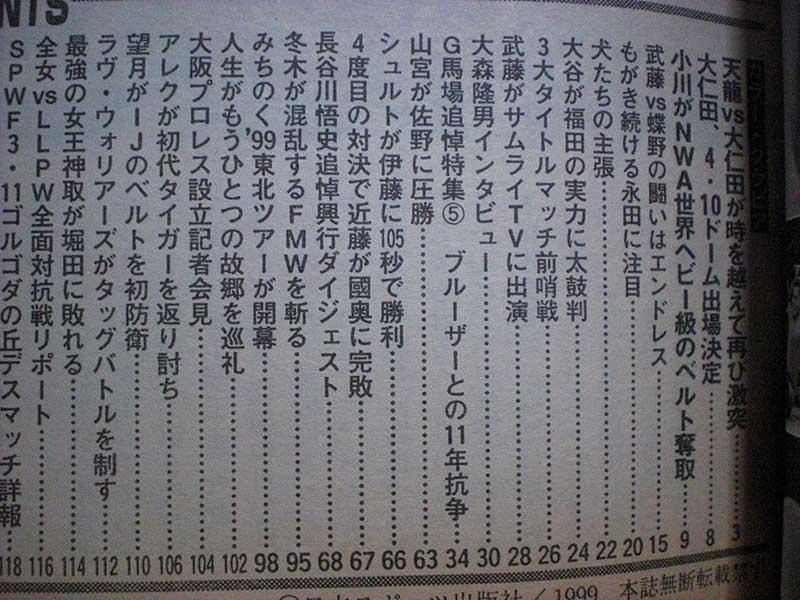 NTS
天龍vs大仁田が時を越えて再び激突………3
大仁田、4・10ドーム出場決定………8
小川がNWA世界ヘビー級のベルト奪取………9
武藤vs蝶野の闘いはエンドレス………15
もがき続ける永田に注目………20
犬たちの主張………22
大谷が福田の実力に太鼓判………24
3大タイトルマッチ前哨戦………26
武藤がサムライTVに出演………28
大森隆男インタビュー………30
G馬場追悼特集⑤ ブルーザーとの11年抗争………34
山宮が佐野に圧勝………63
シュルトが伊藤に105秒で勝利………66
4度目の対決で近藤が國奥に完敗………67
長谷川悟史追悼興行ダイジェスト………68
冬木が混乱するFMWを斬る………95
みちのく'99東北ツアーが開幕………98
人生がもうひとつの故郷を巡礼………102
大阪プロレス設立記者会見………104
アレクが初代タイガーを返り討ち………106
望月がIJのベルトを初防衛………110
ラヴ・ウォリアーズがタッグバトルを制す………112
最強の女王神取が堀田に敗れる………114
全女vsLLPW全面対抗戦リポート………116
SPWF3・11ゴルゴダの丘デスマッチ詳報………118
スポーツ出版社/1999 本誌無断転載禁